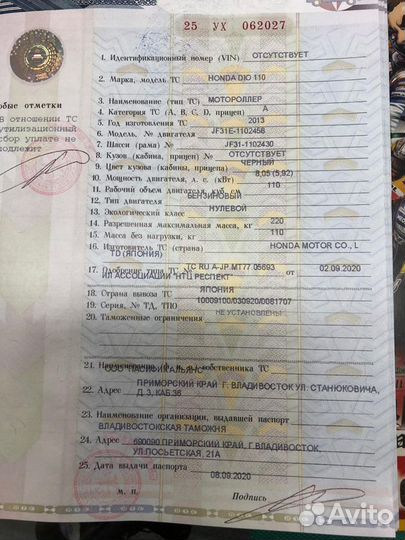 25 УХ 062027
1. Идентификационный номер (VIN) ОТСУТСТВУЕТ
2. Марка, модель ТС HONDA DIO 110
3. Наименование (тип ТС) МОТОРОЛЛЕР
4. Категория ТС (A, B, C, D, прицеп) A
5. Год изготовления ТС 2013
6. Модель, № двигателя JF31E-1102458
7. Шасси (рама) № JF31-1102430
8. Кузов (кабина, прицеп) № ОТСУТСТВУЕТ
9. Цвет кузова (кабины, прицепа) ЧЕРНЫЙ
10. Мощность двигателя, л. с. (кВт) 8,05 (5,92)
11. Рабочий объем двигателя, куб. см 110
12. Тип двигателя БЕНЗИНОВЫЙ
13. Экологический класс НУЛЕВОЙ
14. Разрешенная максимальная масса, кг 220
15. Масса без нагрузки, кг 110
16. Изготовитель ТС (страна) HONDA MOTOR CO., L
TD (ЯПОНИЯ)
17. Одобрение типа ТС № ТС RU A-JP.МТ77.05693 от 02.09.2020
АССОЦИАЦИИ НТЦ РЕСПЕКТ
18. Страна вывоза ТС ЯПОНИЯ
19. Серия, № ТД, ТПО 10009100/030920/0081707
20. Таможенные ограничения НЕ УСТАНОВЛЕНЫ
21. Наименование (ф. и. о.) собственника ТС
ООО
22. Адрес ПРИМОРСКИЙ КРАЙ Г. ВЛАДИВОСТОК УЛ. СТАНЮКОВИЧА,
Д. 3, КАБ.36
23. Наименование организации, выдавшей паспорт
ВЛАДИВОСТОКСКАЯ ТАМОЖНЯ
24. Адрес 690090 ПРИМОРСКИЙ КРАЙ, Г.ВЛАДИВОСТОК,
УЛ.ПОСЬЕТСКАЯ, 21А
25. Дата выдачи паспорта 08.09.2020
М. П. Подпись
обые отметки
В отношении ТС
утилизационный
сбор уплате не
подлежит
Avito